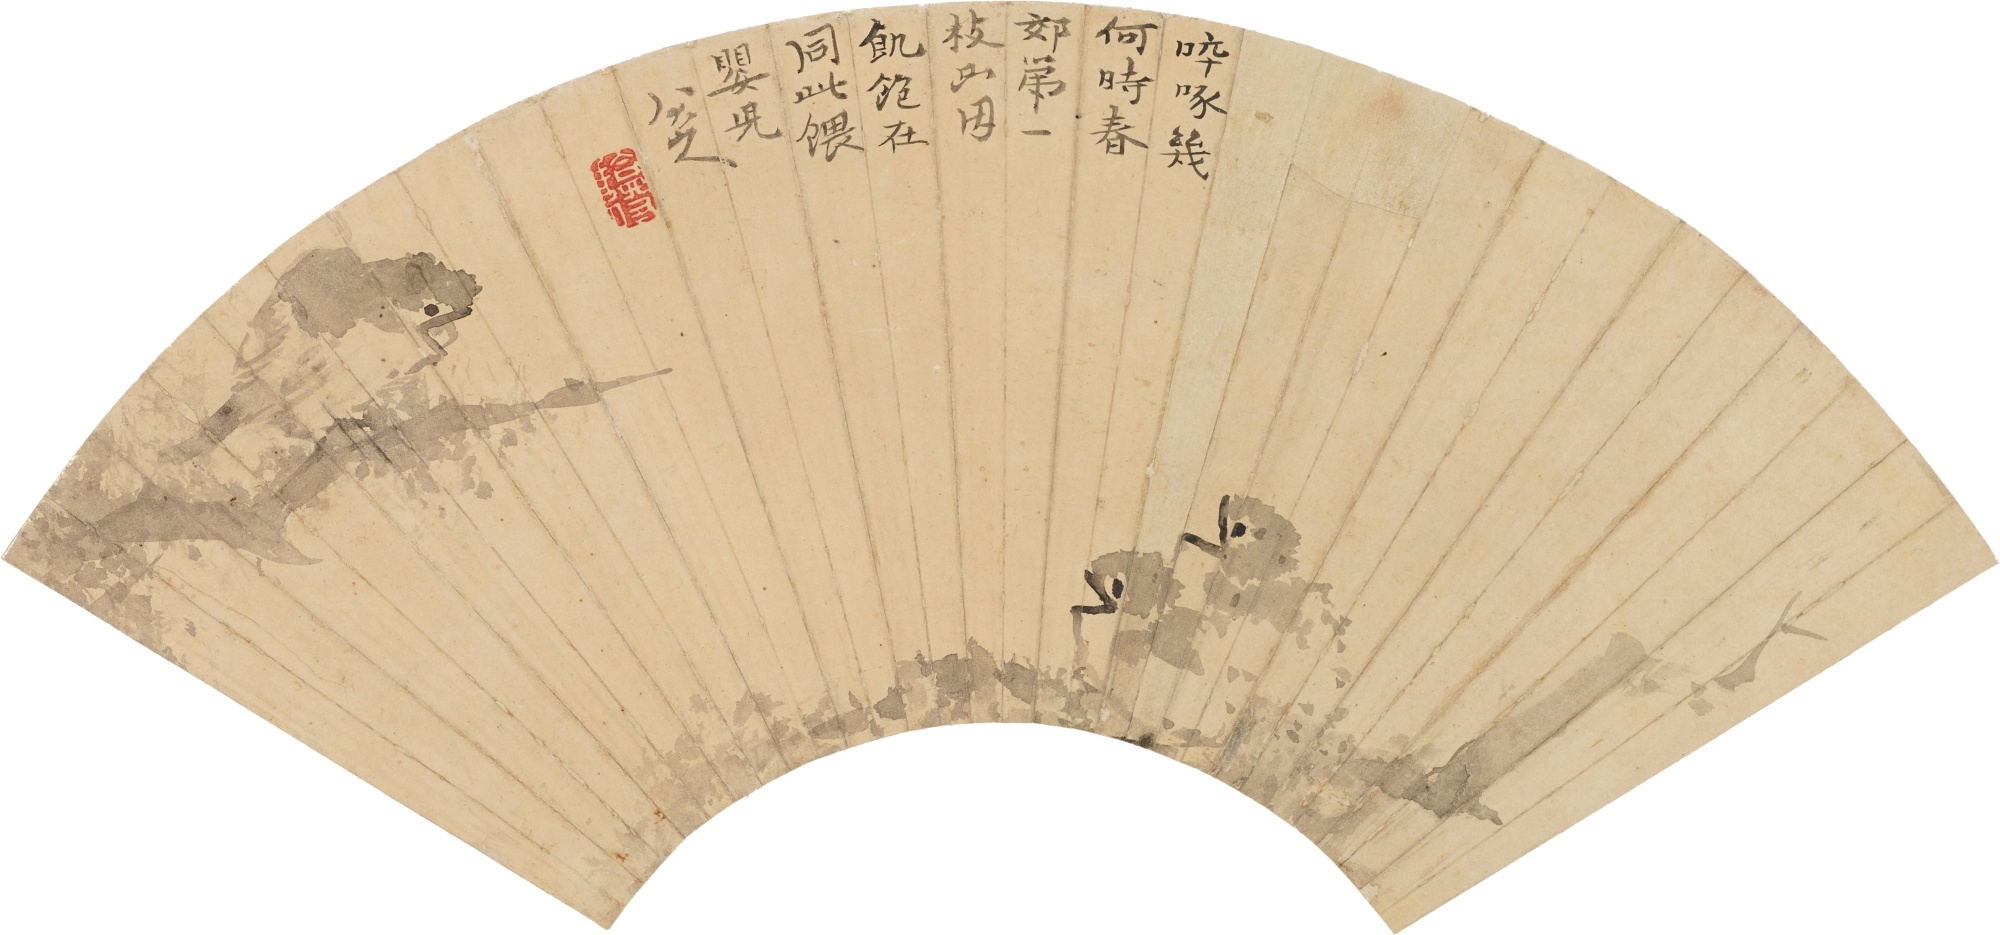 啐啄幾
何時春
郊第一
枝母
飢飽在
同此餵
嬰兒
八大山人